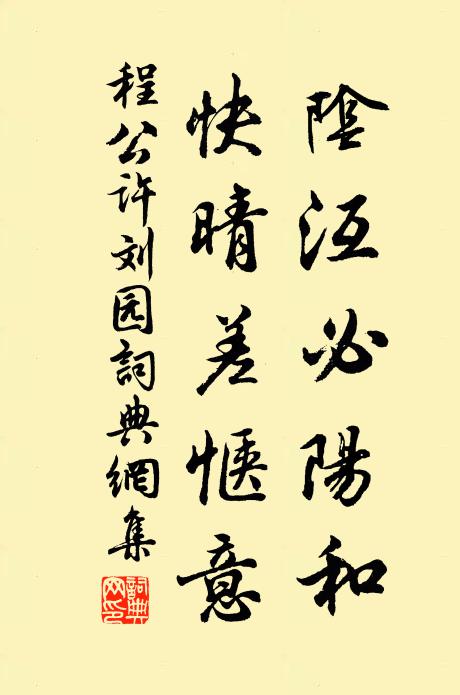 陰沍必陽和
快晴差愜意
程公许刘园詞典網集
詞典网印